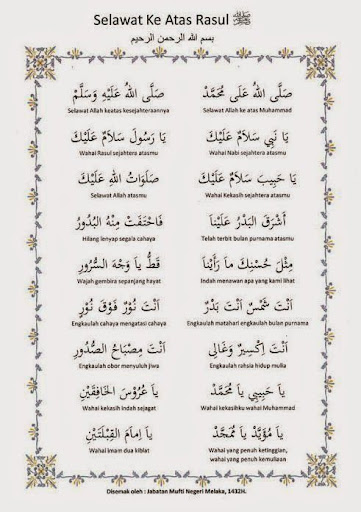 Selawat Ke Atas Rasul ﷺ
بسم الله الرحمن الرحيم
صَلَّى اللهُ عَلَى مُحَمَّدْ
صَلَّى اللهُ عَلَيْهِ وَسَلَّمْ
Selawat Allah ke atas Muhammad
Selawat Allah keatas kesejahteraannya
يَا نَبِي سَلاَمٌ عَلَيْكَ
يَا رَسُولَ سَلاَمٌ عَلَيْكَ
Wahai Nabi sejahtera atasmu
Wahai Rasul sejahtera atasmu
يَا حَبِيبَ سَلاَمٌ عَلَيْكَ
صَلَوَاتُ اللهِ عَلَيْكَ
Wahai Kekasih sejahtera atasmu
Selawat Allah atasmu
أَشْرَقَ الْبَدْرُ عَلَيْناَ
فَاخْتَفَتْ مِنْهُ الْبُدُورُ
Telah terbit bulan purnama atasmu
Hilang lenyap segala cahaya
مِثْلَ حُسْنِكَ ماَ رَأَيْناَ
قَطُّ ياَ وَجْهَ السُّرُورِ
Indah menawan apa yang kami lihat
Wajah gembira sepanjang hayat
أَنْتَ شَمْسٌ أَنْتَ بَدْرٌ
أَنْتَ نُوْرٌ فَوْقَ نُوْرٍ
Engkaulah matahari engkaulah bulan purnama
Engkaulah cahaya mengatasi cahaya
أَنْتَ إِكْسِيرٌ وَغَالِي
أَنْتَ مِصْبَاحُ الصُّدُورِ
Engkaulah rahsia hidup mulia
Engkaulah obor menyuluh jiwa
ياَ حَبِيبِي ياَ مُحَمَّدْ
ياَ عَرُوْسَ الْخَافِقَيْنِ
Wahai kekasihku wahai Muhammad
Wahai kekasih Indah sejagat
ياَ مُؤَيَّدْ ياَ مُمَجَّدْ
ياَ إِمَامَ الْقِبْلَتَيْنِ
Wahai yang penuh ketinggian,
wahai yang penuh kemuliaan
Wahai Imam dua kiblat
Disemak oleh : Jabatan Mufti Negeri Melaka, 1432H.